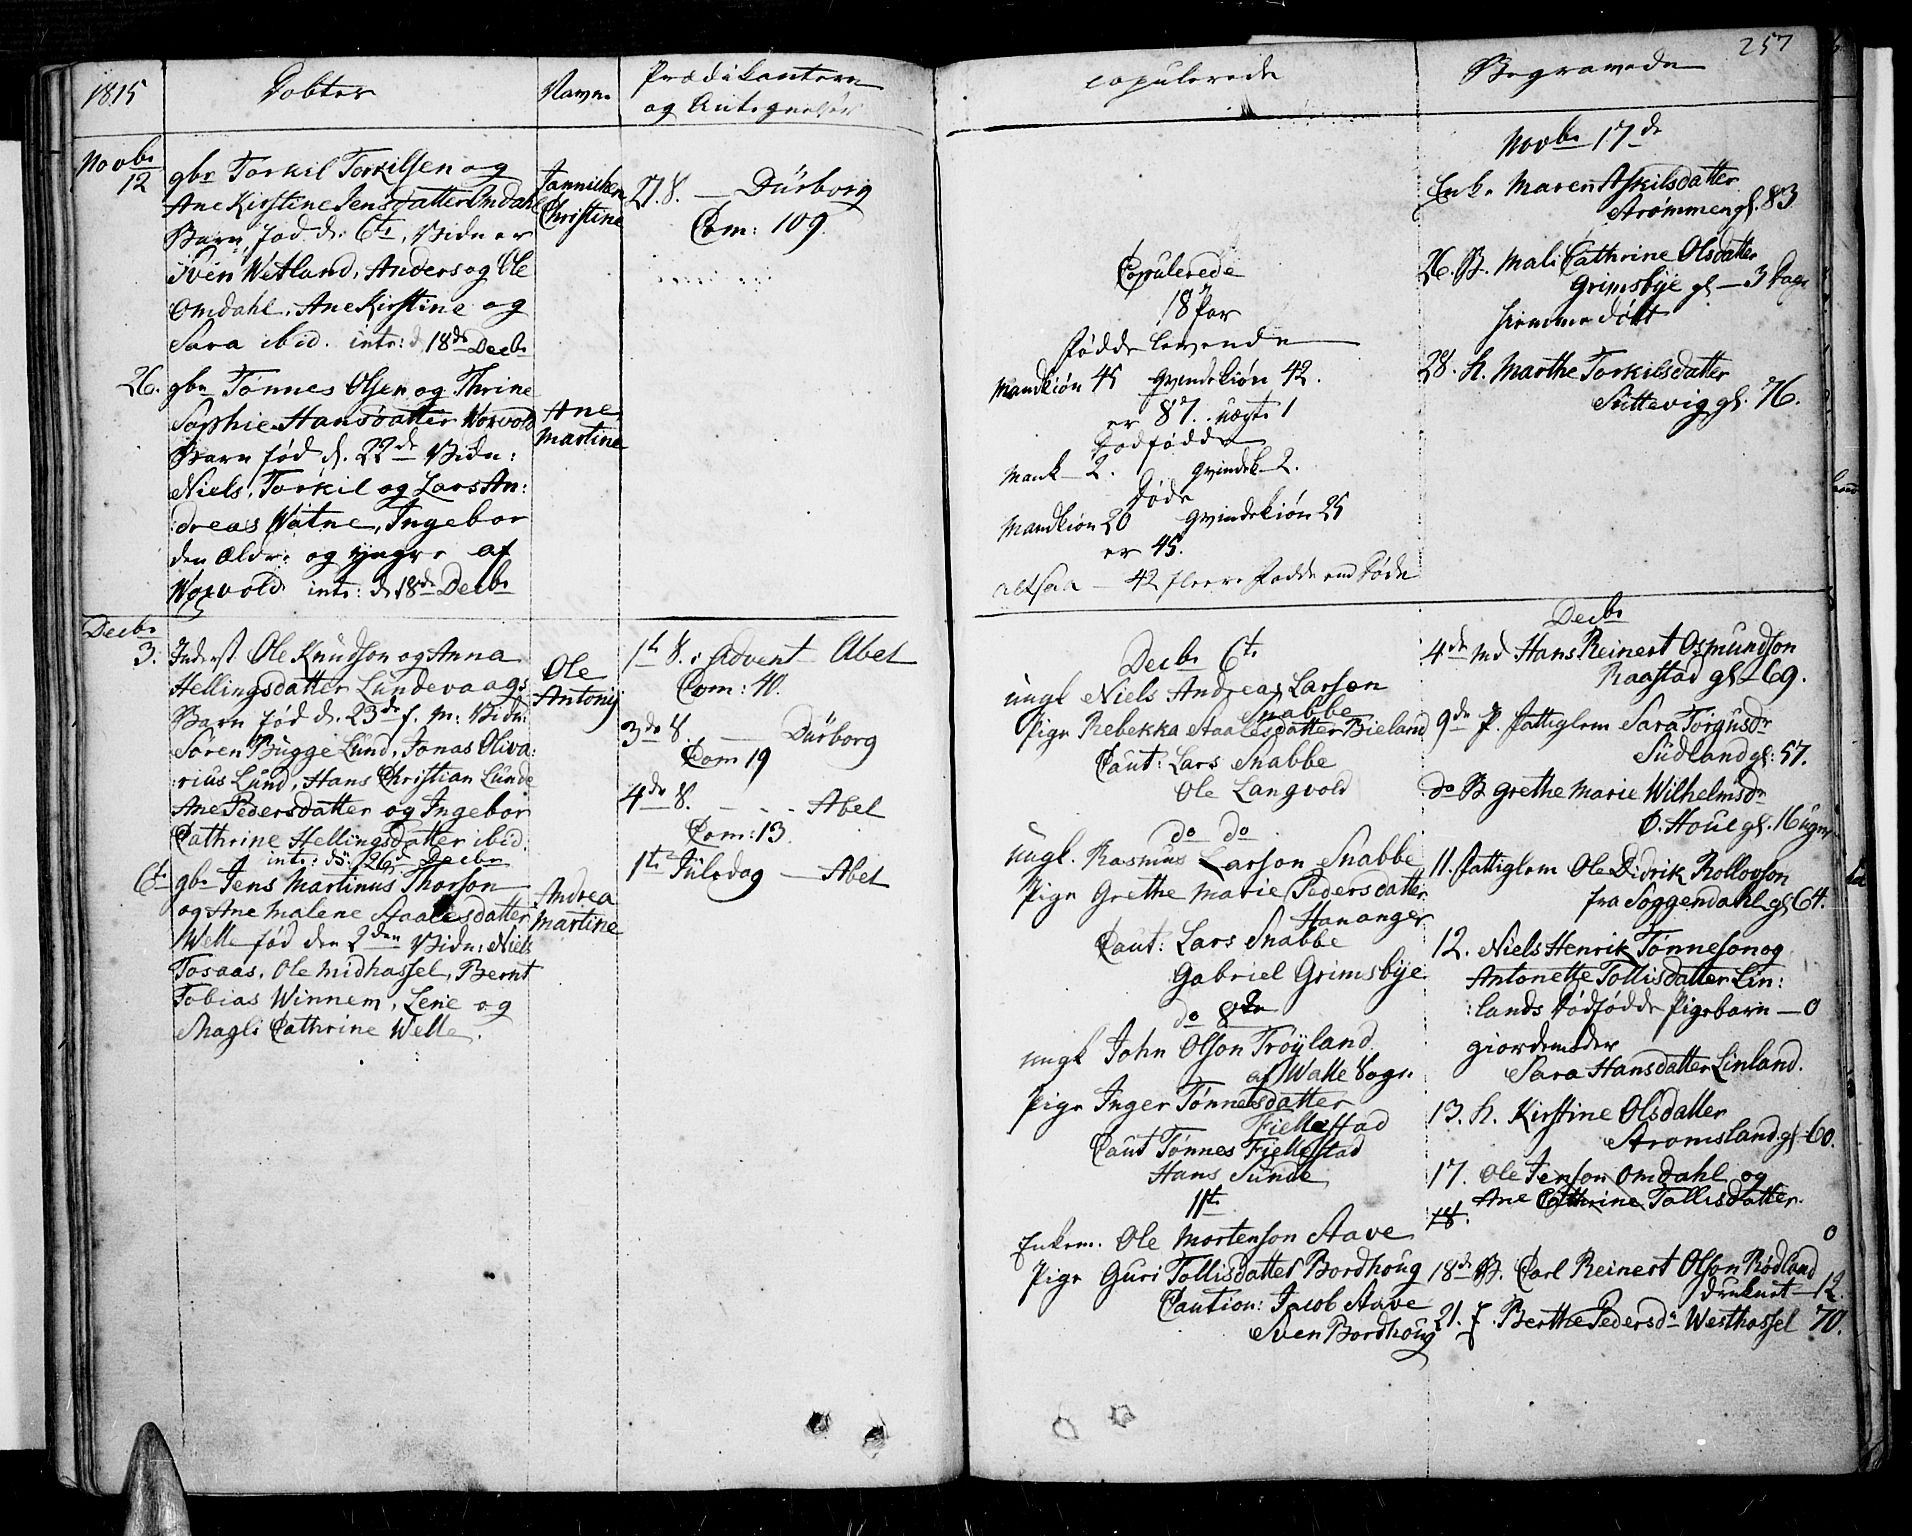 1815
Døbte
Navne
Prædikanterne
og Antegnelser
Novbr
12
gbr Torkil Torkilsen og
Ane Kirstine Jensdatter Omdahl
Barn, fød d. 6te, Vidner
Sven Wetland, Anders og Ole
Omdahl, Ane Kirstine og
Sara ibid. intr: d 18de Decbr
Jannichen
Christine
27. S. — Dürborg
Com: 109
26.
gbr Tønnes Olsen og Thrine
Sophie Hansdatter Worvold
Barn fød d. 22de Vidn:
Niels, Torkil og Lars An:
:dreas Watne, Ingebor
den Ældre og yngre af
Worvold intr: d 18de Decbr
Ane
Martine
Decbr
3.
Inderst Ole Knudson og Anna
Hellingsdatter Lundevaags
Barn fød d. 23de f. M: Vidn:
Søren Bügge Lund, Jonas Oliva:
:rius Lund, Hans Christian Lunde
Ane Pedersdatter og Ingebor
Cathrine Hellingsdatter ibid.
intr: d: 26de Decbr
Ole
Antonij
1te S. i Advent — Abel
Com: 40.
3de S. — Dürborg
Com 19
4de S. - - - Abel
Com: 13.
1te Juledag — Abel
6te
gbr Jens Martinus Thorson
og Ane Malene Staalesdatter
Welle fød den 2den Vidn: Niels
Tosaas, Ole Midhassel, Bernt
Tobias Winnem, Lene og
Magli Cathrine Welle.
Andrea
Martine
257
copulerede
Copulerede
18 Par
Fødde levende
Mandkiøn 45 Qvindekiøn 42.
er 87. uægte 1
Dødfødde
Mank — 2. Qvindek — 2.
Døde
Mandkiøn 20 Qvindekiøn 25
er 45.
altsaa — 42 fleere Fødde end Døde
Decbr 6te
ungk Niels Andreas Larsen
Snabbe
Pige Rebekka Staalesdatter Bieland
Caut: Lars Snabbe
Ole Langvold
do do
ungk. Rasmus Larson Snabbe
Pige Grethe Marie Pedersdatter
Hananger
Caut: Lars Snabbe
Gabriel Grimsbye
do 8de
ungk John Olson Trøyland
af Walle Sogn
Pige Inger Tønnesdatter
Fiellestad
Caut Tønnes Fiellestad
Hans Sunde
11te
Enkem. Ole Mortenson Aave
Pige Guri Tollisdatter Bordhoug
Caution: Jacob Aave
Sven Bordhoug
Begravede
Novbr 17de
Enke Maren Askilsdatter
Strømmen gl. 83
26. B. Mali Cathrine Olsdatter
Grimsbye gl — 3 Dage
hiemmedøbt
28. h. Marthe Torkilsdatter
Suttevig gl. 76.
Decbr
4de Md Hans Reinert Osmundson
Raastad gl — 69.
9de P. Fattiglem Sara Torgusdr
Sudland gl: 57.
do B Grethe Marie Wilhelmsdr
Ø. Houe gl. 16 uger
11. Fattiglem Ole Didrik Rollovson
fra Soggendahl gl 64.
12. Niels Henrik Tønneson og
Antonette Tollisdatter Lin:
:lands Dødfødde Pigebarn — 0
Giordemoder
Sara Hansdatter Linland.
13. h. Kirstine Olsdatter
Stromsland gl — 60.
17. Ole Jenson Omdahl og
Ane Cathrine Tollisdatter
18.
0
18de B. Carl Reinert Olson Rødland
druknet — 12.
21. f. Berthe Pedersdr Westhassel 70.